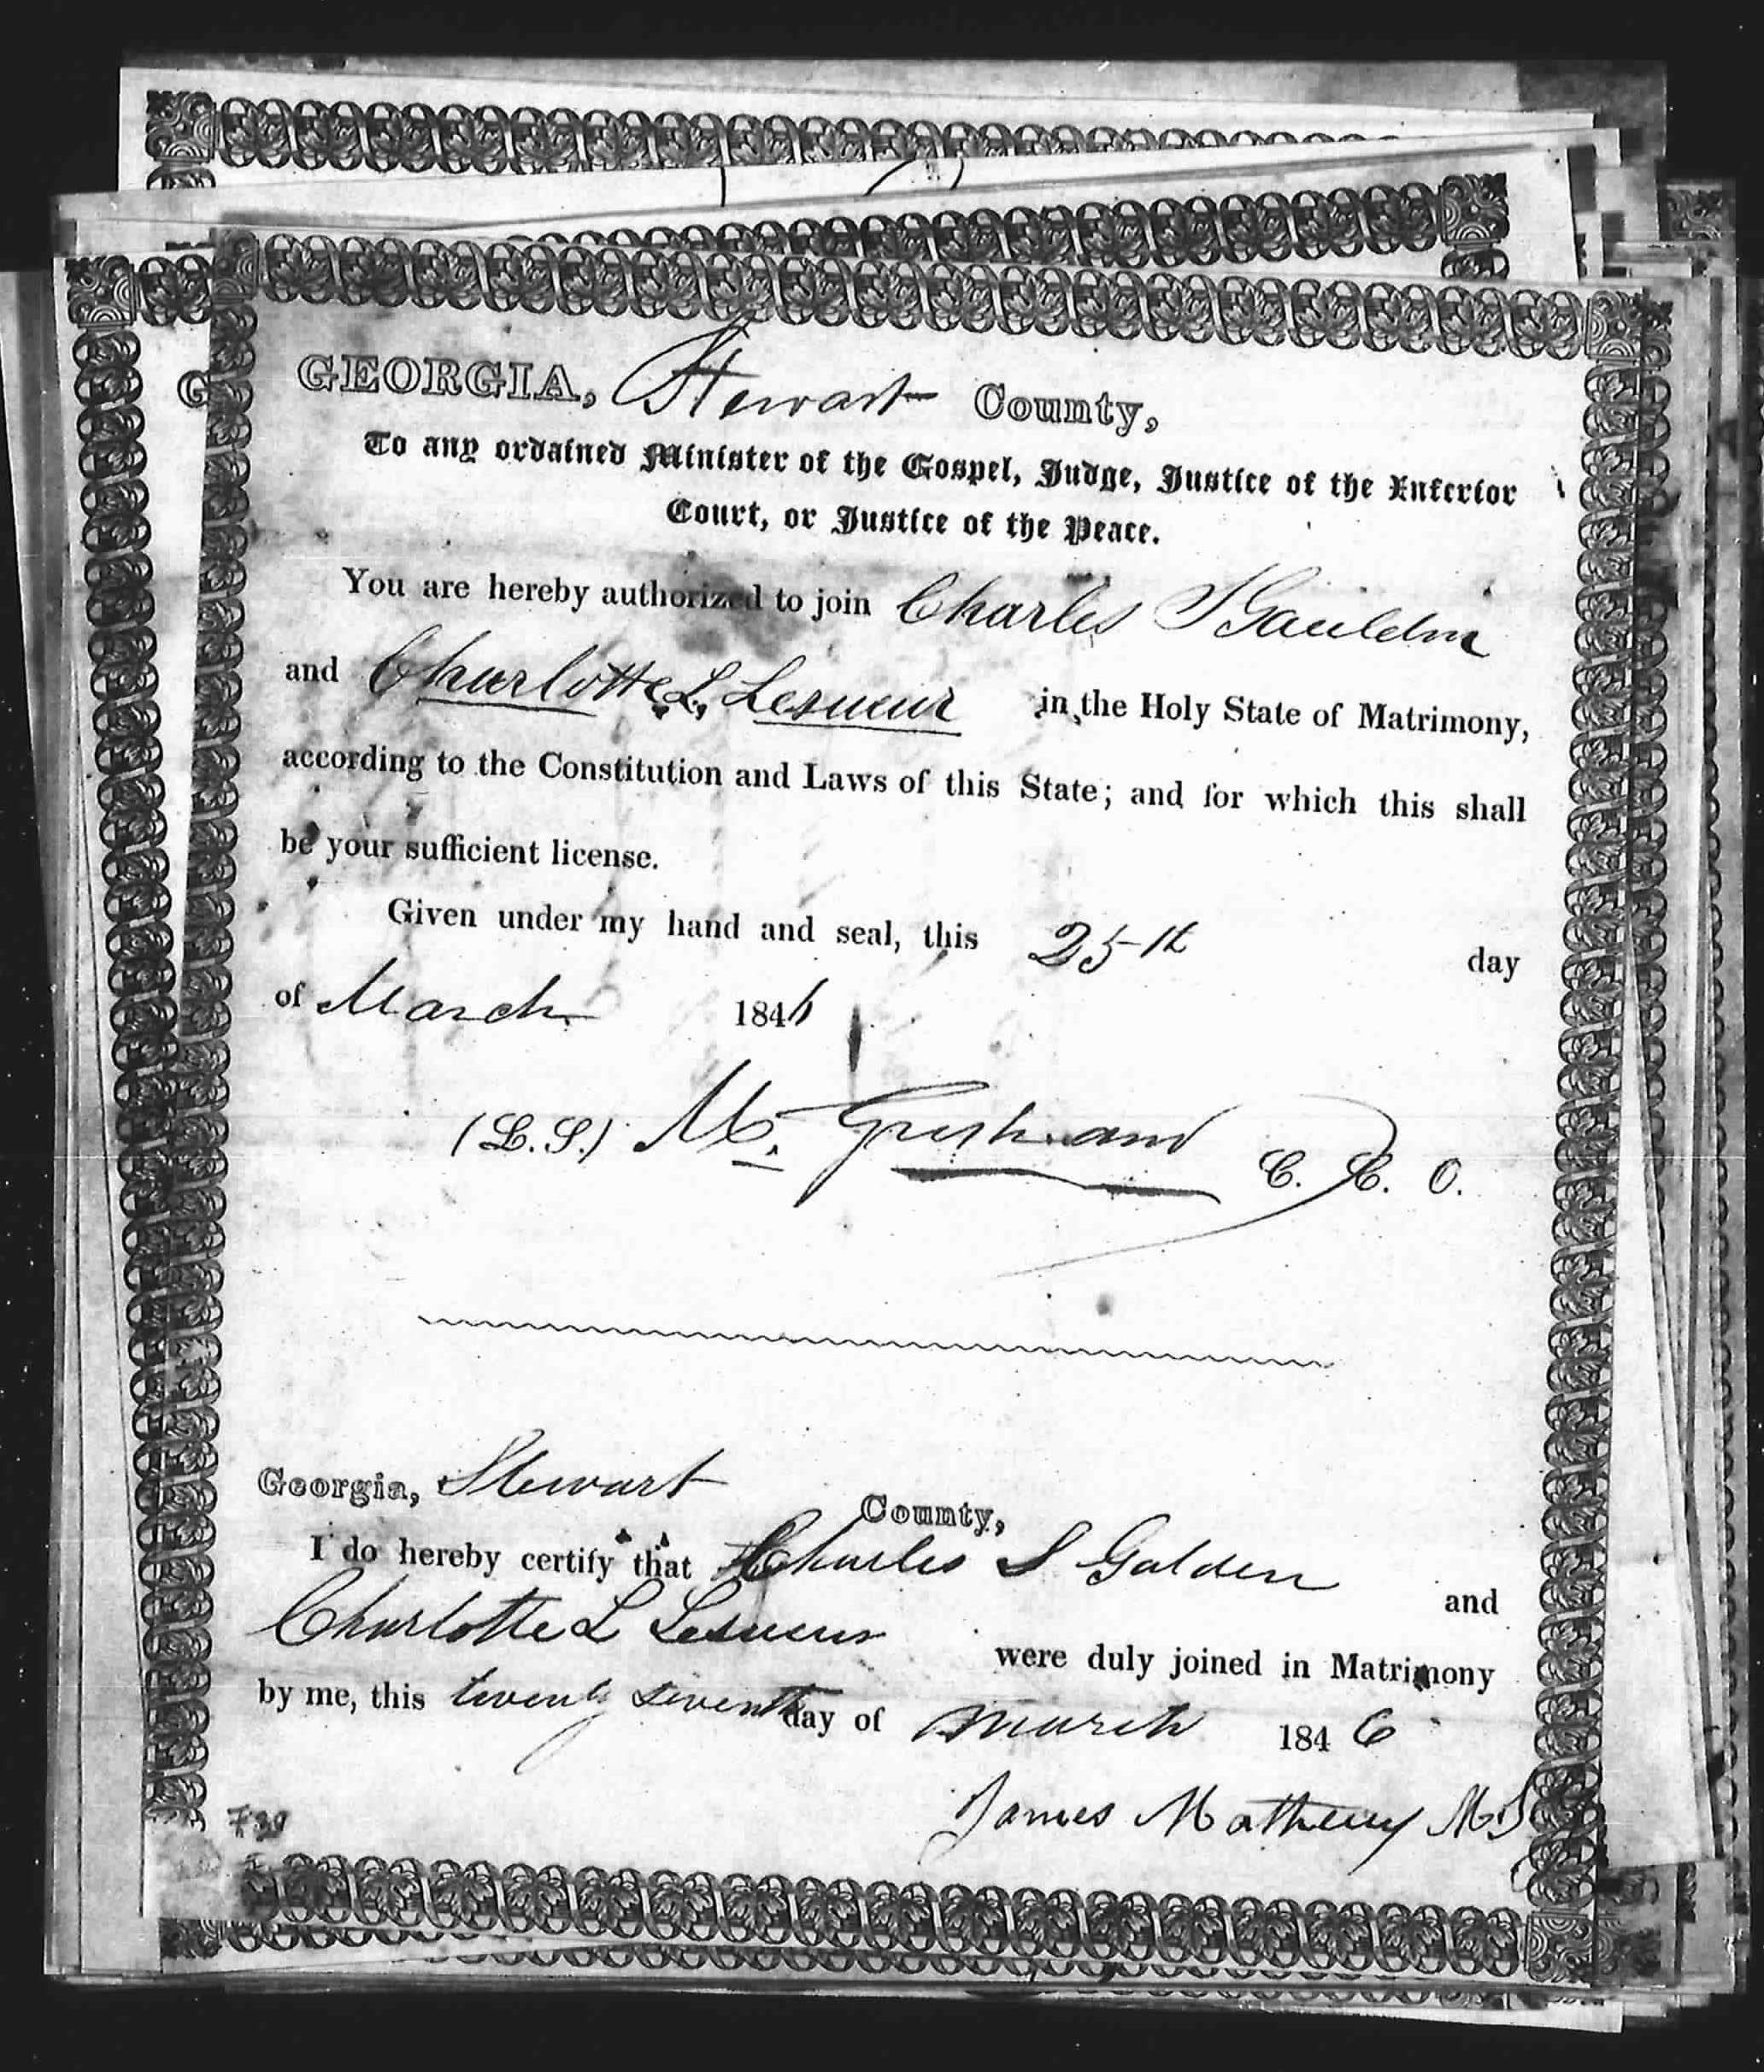 GEORGIA, Stewart County,
To any ordained Minister of the Gospel, Judge, Justice of the Inferior
Court, or Justice of the Peace.
You are hereby authorized to join Charles S Gauldin
and Charlotte L. Lesueur in the Holy State of Matrimony,
according to the Constitution and Laws of this State; and for which this shall
be your sufficient license.
Given under my hand and seal, this 25th day
of March 1846
(L.S.) M. C. C. O.
Georgia, Stewart County,
I do hereby certify that Charles S Golden and
Charlotte L Lesueur were duly joined in Matrimony
by me, this twenty seventh day of March 1846
James Matheny M.G
739
G